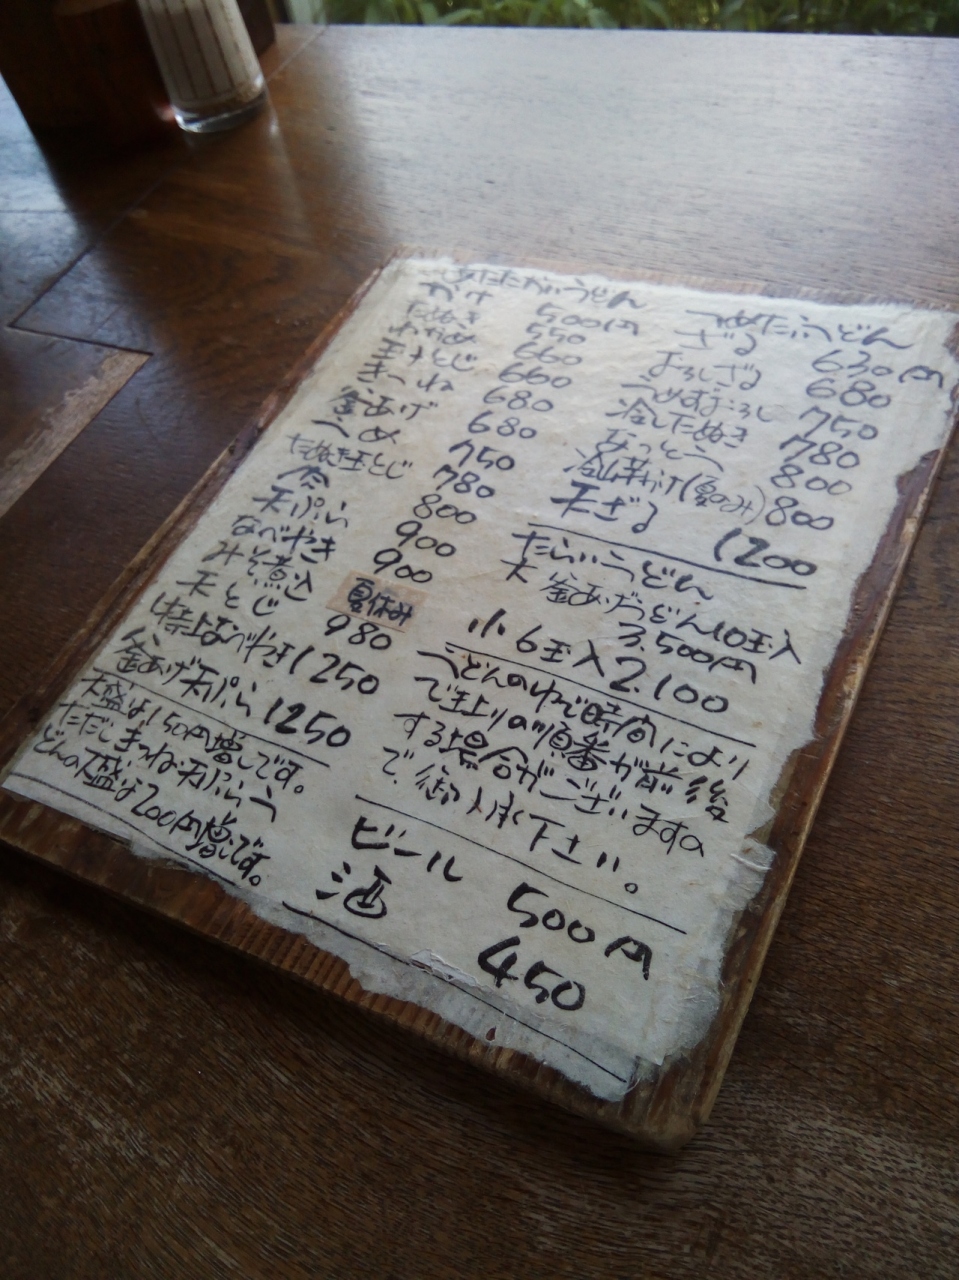 あたたかいうどん
かけ 500円
たぬき 550
わかめ 660
玉子とじ 660
きつね 680
釜あげ 680
うめ 750
たぬき玉とじ 780
肉 800
天ぷら 900
なべやき 900
みそ煮込 夏休み
天とじ 980
特上なべやき 1250
釜あげ天ぷら 1250
大盛は150円増しです。
ただしきつね・天ぷらう
どんの大盛は200円増しです。
つめたいうどん
ざる 630円
おろしざる 680
うめずおろし 750
冷したぬき 780
なっとう 800
冷山芋かけ(夏のみ) 800
天ざる 1200
たらいうどん
大 釜あげうどん10玉入
3.500円
小 6玉入 2.100
うどんのゆで時間により
で上りの順番が前後
する場合がございますの
で、御了承下さい。
ビール 500円
酒 450